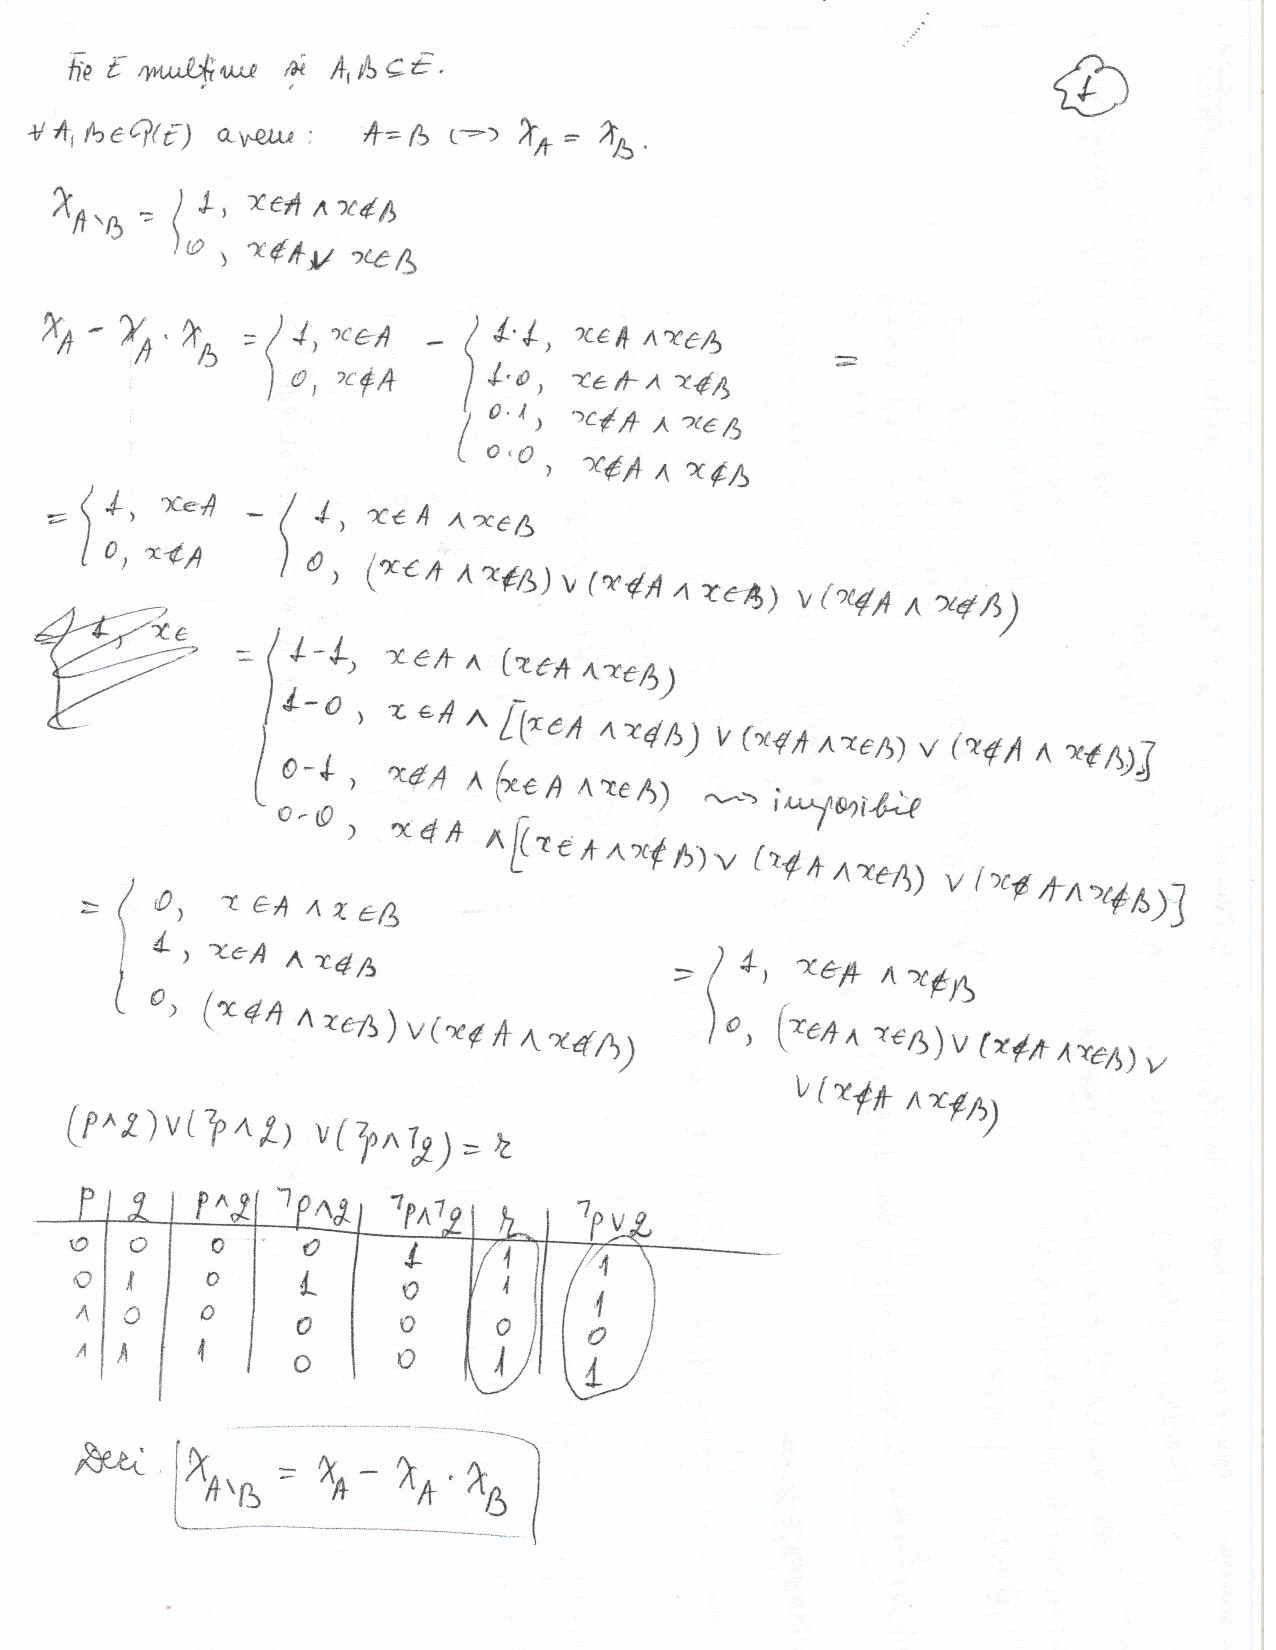 Fie E mulțime și A, B ⊆ E.
1
∀ A, B ∈ P(E) avem: A = B ⟺ χ_A = χ_B.
χ_{A∖B} = { 1, x∈A ∧ x∉B
0, x∉A ∨ x∈B
χ_A − χ_A · χ_B = { 1, x∈A − { 1·1, x∈A ∧ x∈B =
0, x∉A 1·0, x∈A ∧ x∉B
0·1, x∉A ∧ x∈B
0·0, x∉A ∧ x∉B
= { 1, x∈A − { 1, x∈A ∧ x∈B
0, x∉A 0, (x∈A ∧ x∉B) ∨ (x∉A ∧ x∈B) ∨ (x∉A ∧ x∉B)
1, x∈
= { 1−1, x∈A ∧ (x∈A ∧ x∈B)
1−0, x∈A ∧ [(x∈A ∧ x∉B) ∨ (x∉A ∧ x∈B) ∨ (x∉A ∧ x∉B)]
0−1, x∉A ∧ (x∈A ∧ x∈B) ⇝ imposibil
0−0, x∉A ∧ [(x∈A ∧ x∉B) ∨ (x∉A ∧ x∈B) ∨ (x∉A ∧ x∉B)]
= { 0, x∈A ∧ x∈B
1, x∈A ∧ x∉B
0, (x∉A ∧ x∈B) ∨ (x∉A ∧ x∉B)
= { 1, x∈A ∧ x∉B
0, (x∈A ∧ x∈B) ∨ (x∉A ∧ x∈B) ∨
∨ (x∉A ∧ x∉B)
(p∧q) ∨ (¬p∧q) ∨ (¬p∧¬q) = r
p | q | p∧q | ¬p∧q | ¬p∧¬q | r | ¬p∨q
0 0 0 0 1 1 1
0 1 0 1 0 1 1
1 0 0 0 0 0 0
1 1 1 0 0 1 1
Deci χ_{A∖B} = χ_A − χ_A · χ_B